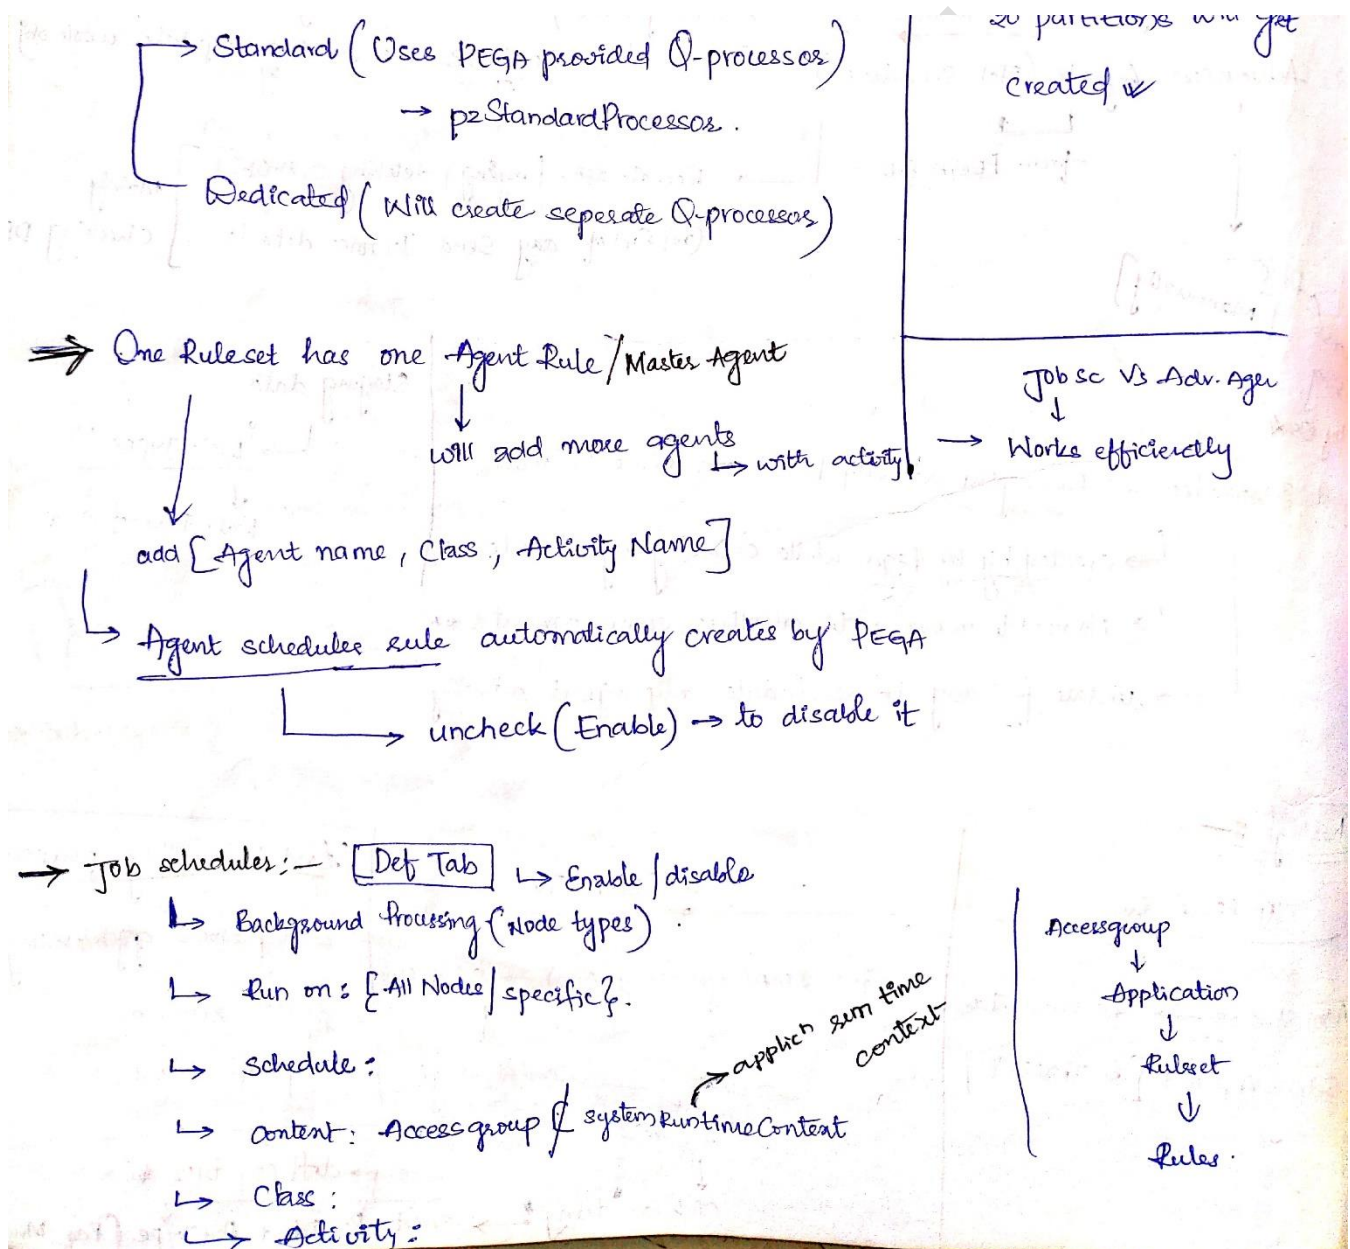 Standard (Uses PEGA provided Q-processor)
→ pzStandardProcessor.
Dedicated (Will create seperate Q-processor)
20 partitions will get
created
⇒ One Ruleset has one Agent Rule / Master Agent
will add more agents
↳ with activity
Job sc Vs Adv. Agen
→ Works efficiently
add [Agent name, Class, Activity Name]
↳ Agent scheduler rule automatically creates by PEGA
uncheck (Enable) → to disable it
→ Job scheduler:- [Def Tab] ↳ Enable / disable
↳ Background Processing (Node types).
↳ Run on: {All Nodes / specific}.
↳ Schedule:
↳ Context: Access group / system Runtime Context
applicⁿ run time
context
↳ Class:
↳ Activity:
Accessgroup
↓
Application
↓
Ruleset
↓
Rules.